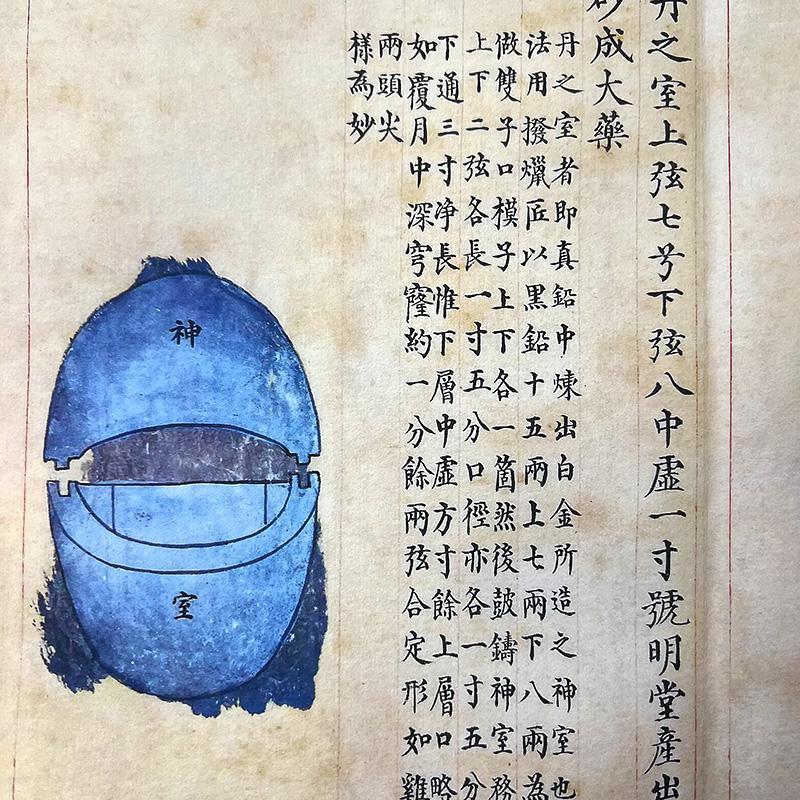 丹之室上弦七兮下弦八中虛一寸號明堂產出
砂成大藥
丹之室者即真鉛中煉出白金所造之神室也
法用撥蠟匠以黑鉛十五兩上七兩下八兩為
做雙子口模子上下各一箇然後皷鑄神室務
上下二弦各長一寸五分口徑亦各一寸五分
下通三寸净長惟下層中虛方寸餘上層口略
如覆月中深穹窿約一分餘兩弦合定形如雞
兩頭尖
樣為妙
神
室